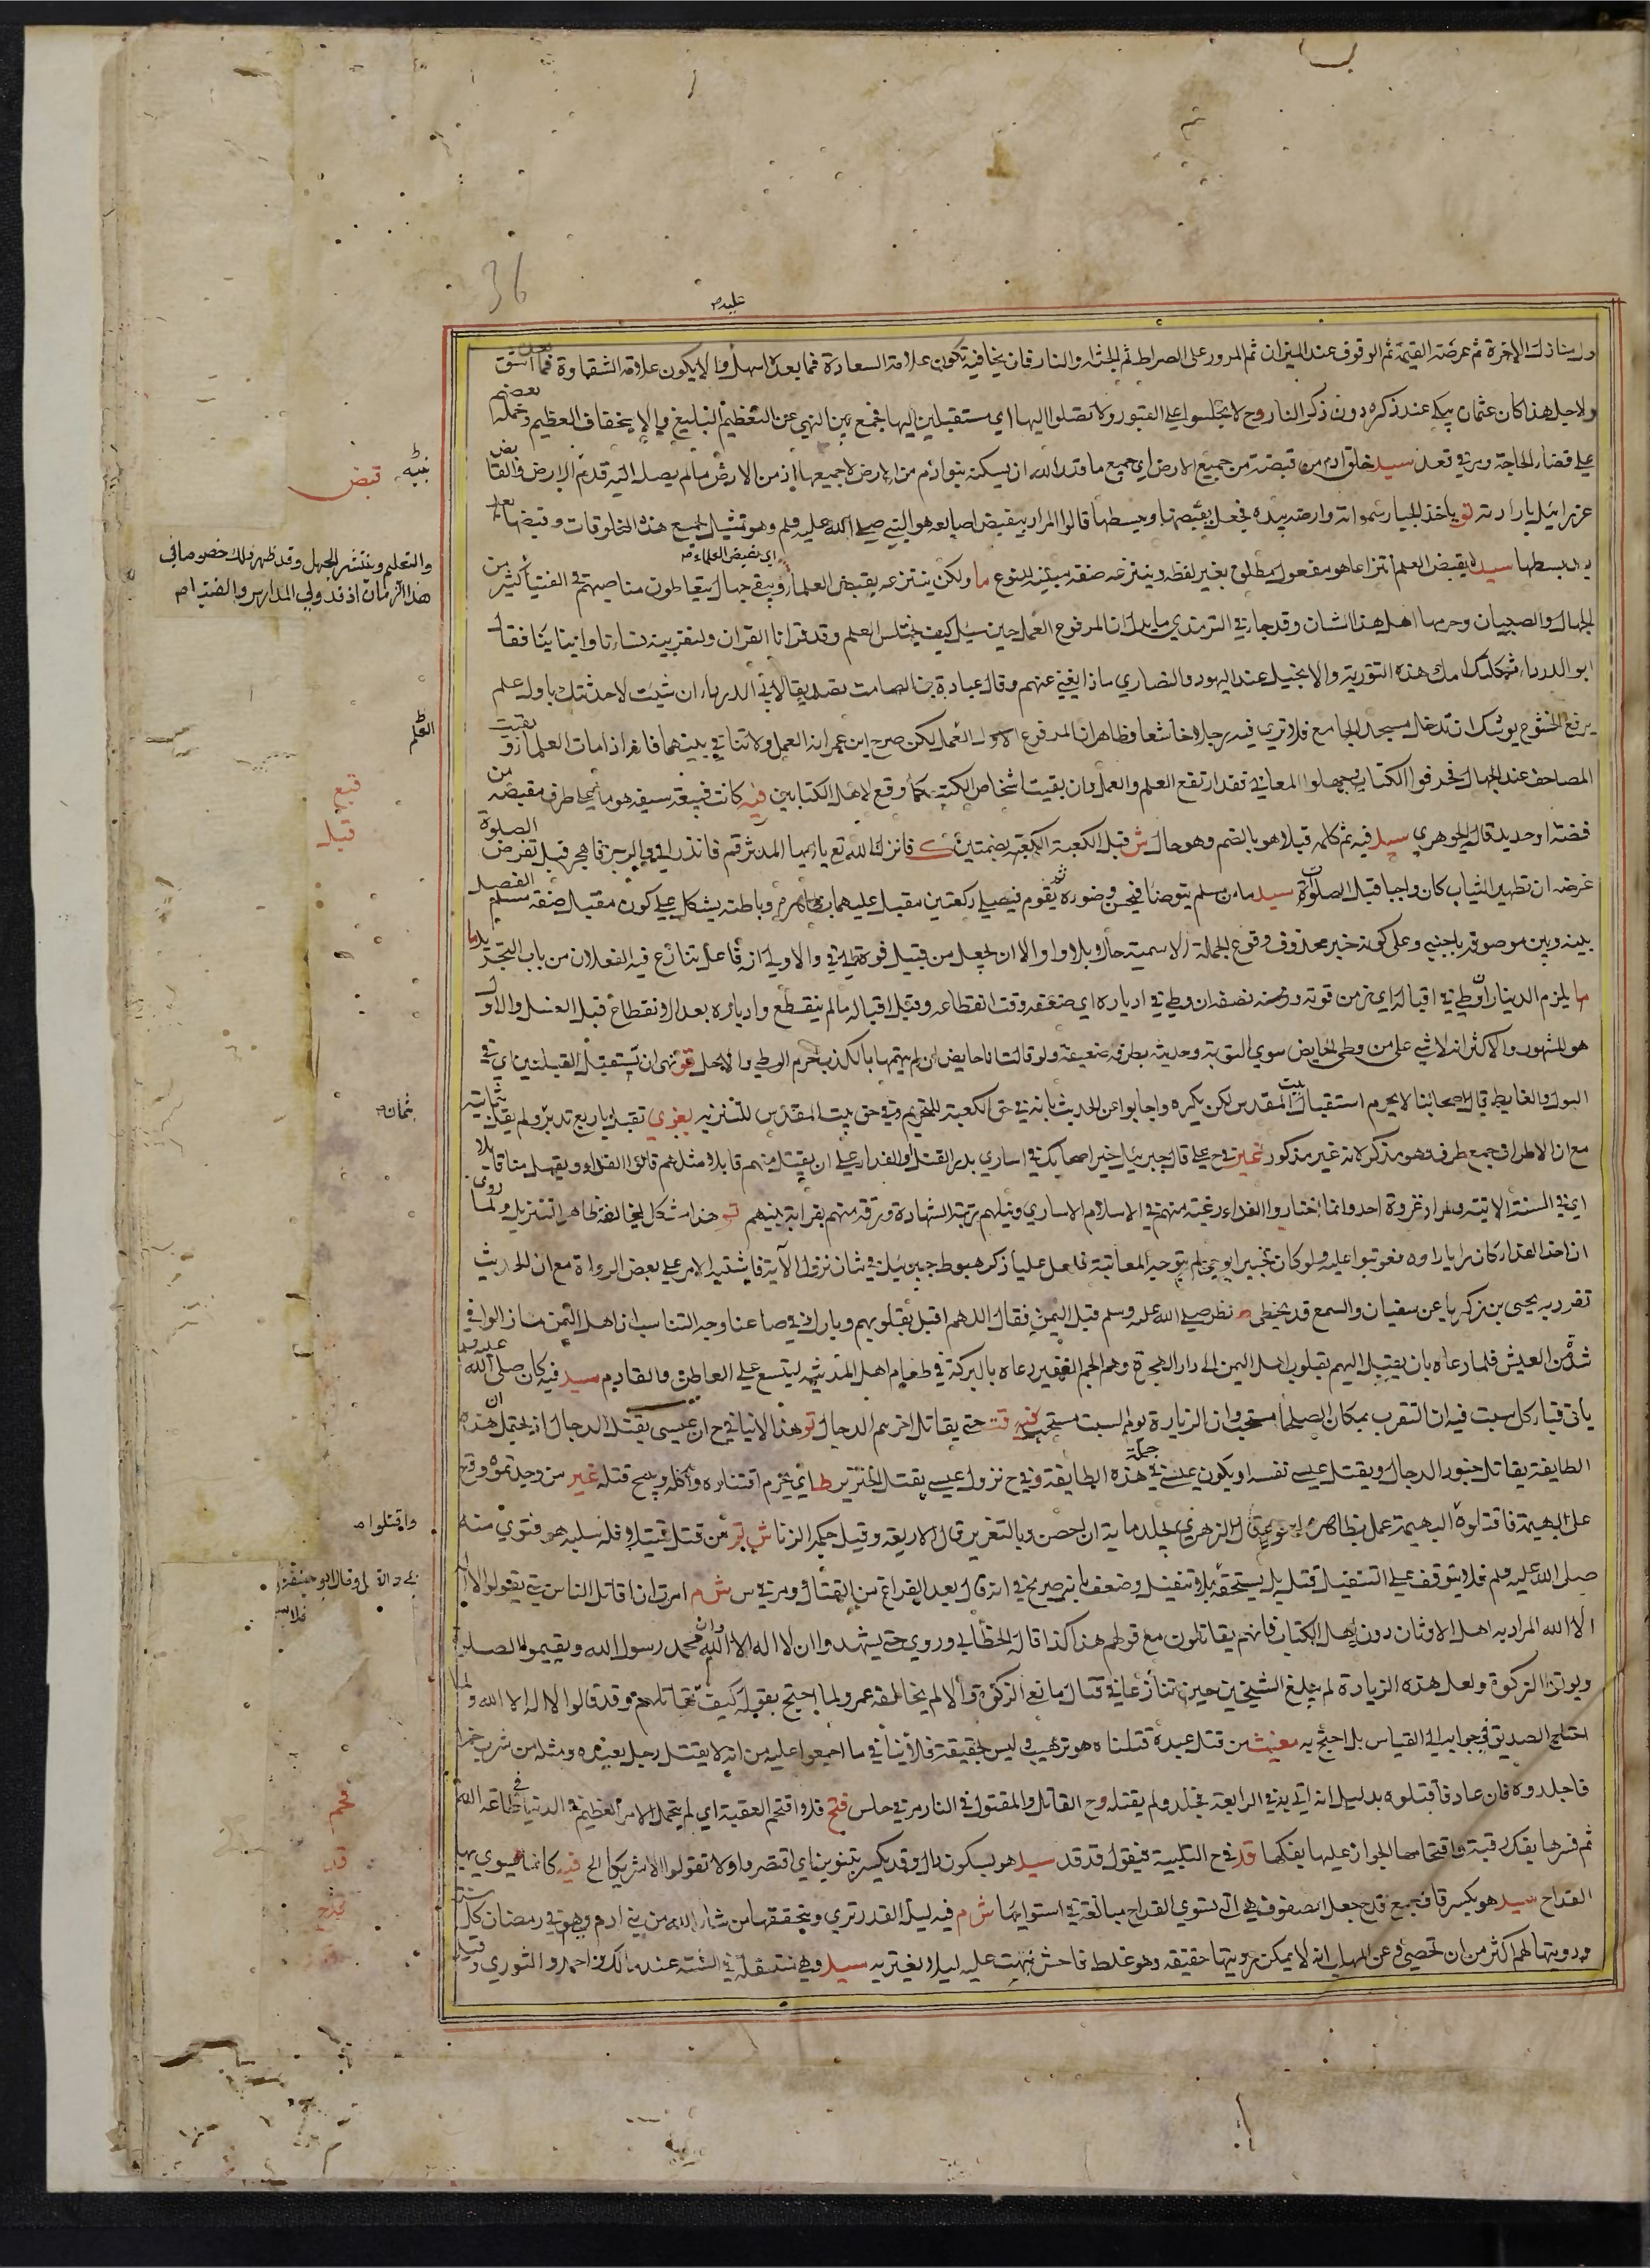 36
عليه م
من منازل الاخرة ثم عرضة القيمة ثم الوقوف عند الميزان ثم المرور على الصراط ثم الجنة والنار فان يخافيه يكون علامة السعادة فما بعده اسهل والا يكون علاقة الشقاوة فما بعده اشق
ولاجل هذا كان عثمان يبكي عند ذكره دون ذكر النار وح لا تجلسوا على القبور ولا تصلوا اليها اي مستقبلين اليها فجمع بين النهي عن التعظيم البليغ والاستخفاف العظيم وحمله بعضهم
على قضاء الحاجة ومر في تعد سيد خلق ادم من قبضة من جميع الارض اي جميع ما قدر الله ان يسكنه بنو ادم من الارض لا جميعها اذ من الارض ما لم يصل اليه قدم الارض والقابض
عزرائيل بارادته تو ياخذ الجبار سمواته وارضه بيده فجعل يقبضها ويبسطها قالوا المراد بيقبض اصابعه هو النبي صلى الله عليه وسلم وهو تمثيل لجمع هذه المخلوقات وقبضها بعد
بسطها سيد لا يقبض العلم انتزاعا هو مفعول مطلق بغير لفظه وينتزعه صفة مبينة للنوع ما ولكن ينتزعه بقبض العلماء ويبقى جهال يتعاطون مناصبهم في الفتيا كثير من
اي بقبض العلماء م
الجهال والصبيان وحرمها اهل هذا الشان وقد جاء في الترمذي ما يدل ان المرفوع العمل حين سئل كيف يختلس العلم وقد قرانا القران ولنقرينه نساءنا وابناءنا فقال
ابو الدرداء ثكلتك امك هذه التورية والانجيل عند اليهود والنصاري ماذا يغني عنهم وقال عبادة بن الصامت تصديقا لابي الدرداء ان شئت لاحدثنك باول علم
يرفع الخشوع يوشك ان تدخل مسجد الجامع فلا ترى فيه رجلا خاشعا وظاهر ان المرفوع الاول العمل لكن صرح ابن عمر انه العمل ولا تنافي بينهما فانه اذا مات العلماء وبقيت
المصاحف عند الجهال فحرفوا الكتاب وجهلوا المعاني فقد ارتفع العلم والعمل وان بقيت اشخاص الكتب كما وقع لاهل الكتابين فيه كانت قبيعة سيفه هو ما على طرف مقبضه من
فضة او حديد قال الجوهري سيد فيه ثم كلمه قبلا وهو بالضم وهو حال ش قبل الكعبة بضمتين ك فانزل الله تع يا ايها المدثر قم فانذر الى والرجز فاهجر قبل تفرض الصلوة
غرضه ان تطهير الثياب كان واجبا قبل الصلوة سيد ما من مسلم يتوضا فيحسن وضوءه ثم يقوم فيصلي ركعتين مقبل عليهما اي بظاهره وباطنه يشكل على كون مقبل صفة مسلم الفصل
بينه وبين موصوفه باجنبي وعلى كونه خبر محذوف وقوع الجملة الاسمية حالا بلا واو الا ان يجعل من قبيل فوه الى في والاولى انه فاعل تنازع فيه الفعلان من باب التجريد
ما يلزم الدينار ان وطئ في اقباله اي من قوته ونصفه ان وطئ في ادباره اي ضعفه وقت انقطاعه وقيل اقباله ما لم ينقطع وادباره بعد الانقطاع قبل الغسل والاول
هو المشهور والاكثر انه لا شيء على من وطئ الحايض سوى التوبة وحديثه بطرقه ضعيفة ولو قالت انا حايض ان لم يتهمها بالكذب يحرم الوطي والا يحل تو نهى ان يستقبل القبلتين اي في
البول والغايط قال اصحابنا لا يحرم استقبال بيت المقدس لكن يكره واجابوا عن الحديث بانه في حق الكعبة للتحريم وفي حق بيت المقدس للتنزيه بغوي تقبل باربع تدبر ولم يقل ثمانية
مع ان الاطراف جمع طرف وهو مذكر لانه غير مذكور غير وح علي قال جبرئيل خير اصحابك في اساري بدر القتل او الفداء على ان يقتل منهم قابلا مثلهم قالوا الفداء ويقتل منا قابلا
اي في السنة الاتية والمراد غزوة احد وانما اختاروا الفداء رغبة منهم في اسلام الاساري ونيلهم رتبة الشهادة ورقة منهم بقرابة بينهم تو هذا مشكل لمخالفة ظاهر التنزيل ولما روى
ان اخذ الفداء كان رايا راوه فعوتبوا عليه ولو كان تخيير ابوحي لم يتوجه المعاتبة فلعل عليا ذكر هبوط جبريئل في شان نزول الاية فاشتبه الامر على بعض الرواة مع ان الحديث
تفرد به يحيى بن زكريا عن سفيان والسمع قد يخطي نظر صلى الله عليه وسلم قبل اليمن فقال اللهم اقبل بقلوبهم وبارك في صاعنا وجه التناسب ان اهل اليمن مازالوا في
شدة من العيش فلما دعاه بان يقبل اليهم بقلوب اهل اليمن الى دار الهجرة وهم الجم الغفير دعاه بالبركة في طعام اهل المدينة ليتسع على القاطن والقادم سيد فيه كان صلى الله عليه وسلم
ياتي قباء كل سبت فيه ان التقرب بمكان الصلحاء مستحب وان الزيارة يوم السبت مستحب فيه قتـ حتى يقاتل اخرهم الدجال تو هذا لا ينافي ح ان عيسى يقتل الدجال اذ يحتمل ان هذه
الطايفة يقاتل جنود الدجال ويقتل عيسى نفسه او يكون عيسى في جملة هذه الطايفة وفي ح نزول عيسى يقتل الخنزير ط اي يحرم اقتناءه واكله ويبيح قتله غير من وجدتموه وقع
على البهيمة فاقتلوه البهيمة عمل بظاهره الزهري يجلد ماية ان احصن وبالتعزير قال الاربعة وقيل حكم الزنا ش تو من قتل قتيلا فله سلبه هو فتوى منه
صلى الله عليه وسلم فلا يتوقف على التنفيل قتل بل يستحقه بلا تنفيل وضعف بانه صريح في انه قال بعد الفراغ من القتال ومر في س ش م امرت ان اقاتل الناس حتى يقولوا لا اله
الا الله المراد به اهل الاوثان دون اهل الكتاب فانهم يقاتلون مع قولهم هذا كذا قال الخطابي وروي حتى يشهدوا ان لا اله الا الله وان محمد رسول الله ويقيموا الصلوة
ويؤتوا الزكوة ولعل هذه الزيادة لم يبلغ الشيخين حين تنازعا في قتال مانعي الزكوة والا لم يخالفه عمر ولما احتج بقوله كيف تقاتلهم وقد قالوا لا اله الا الله ولما
احتاج الصديق في جوابه الى القياس بل احتج به مغيث من قتل عبده قتلناه هو ترهيب وليس بحقيقة فلا ينافي ما اجمعوا عليه من انه لا يقتل رجل بعبده ومثله من شرب خمرا
فاجلدوه فان عاد فاقتلوه بدليل انه اتي به في الرابعة فجلد ولم يقتله وح القاتل والمقتول في النار مر في حلس فتح فلا اقتحم العقبة اي لم يتحمل الامر العظيم في الدنيا في طاعة الله
ثم فسرها بفك رقبة واقتحامها الجواز عليها بفكها قد في ح التلبية فيقول قد قد سيد هو بسكون دال وقد يكسر بتنوين اي اقتصروا ولا تقولوا الا شريكا الخ فيه كانما يسوي بها
القداح سيد هو بكسر قاف جمع قدح جعل الصفوف هي التي تسوي القداح مبالغة في استوائها ش م فيه ليلة القدر ترى ويتحققها من شاء الله من بني ادم وهو في رمضان كل سنة
ورؤيتها لهم اكثر من ان تحصى وعن المهلب انه لا يمكن رؤيتها حقيقة وهو غلط فاحش نبهت عليه ليلا يغتر به سيد وهي منتقلة في السنة عند مالك واحمد والثوري وقيل
تنبيه قبض
والتعلم وينتشر الجهل وقد ظهر ذلك خصوصا في
هذا الزمان اذ قد ولي المدارس والفتيا م
العلم
قبع
قبل
ثمان م
واقتلوا م
وقال ابو حنيفة
قحم
قد
قدح
قدر